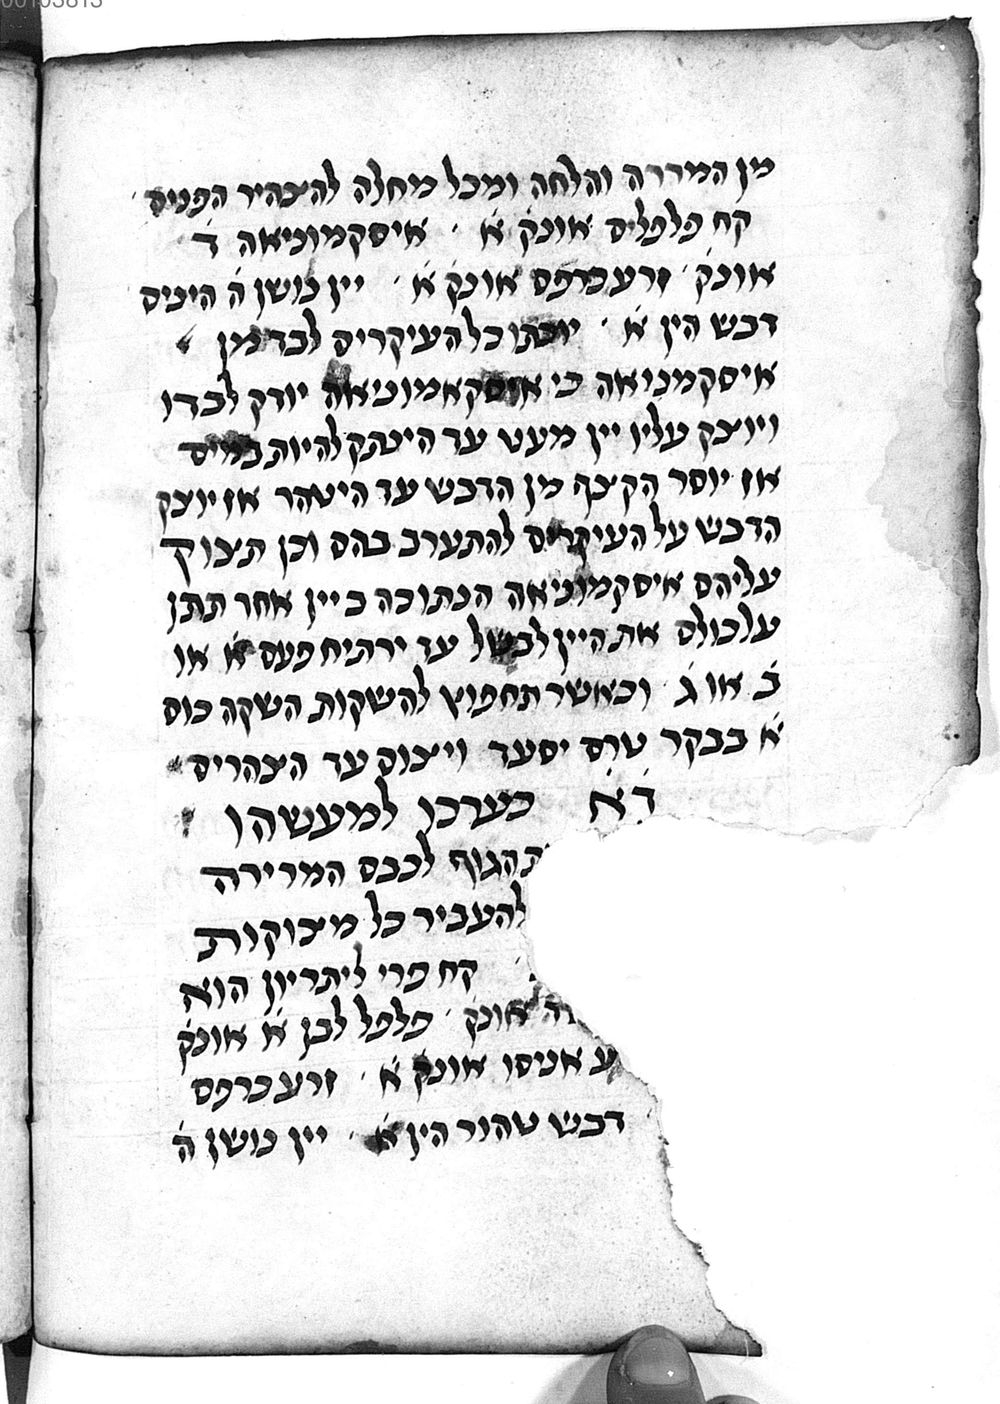 00103813
מן המררה והלחה ומכל מחלה להצהיר הפנים
קח פלפלים אונק׳ א׳ איסקמוניאה ד׳
אונק׳ זרע כרפס אונק׳ א׳ יין נושן ה׳ הינים
דבש הין א׳ יוכתו כל העיקרים לבד מן
איסקמניאה כי איסקאמוניאה יודק לבדו
ויוצק עליו יין מעט עד הינתק להיות כמים
אז יוסר הקצף מן הדבש עד היטהר אז יוצק
הדבש על העיקרים להתערב בהם וכן תצוק
עליהם איסקמוניאה הנתוכה ביין אחר תתן
על כולם את היין לבשל עד ירתיח פעם א׳ או
ב׳ או ג׳ וכאשר תחפוץ להשקות השקה כוס
א׳ בבקר טרם יסעד ויצום עד הצהרים
כערכו למעשהו
הגוף לכבס המרירה
להעביר כל מצוקות
קח פרי ליתריון הוא
אונק׳ פלפל לבן א׳ אונק׳
אניסו אונק׳ א׳ זרע כרפס
דבש טהור הין א׳ יין נושן ה׳